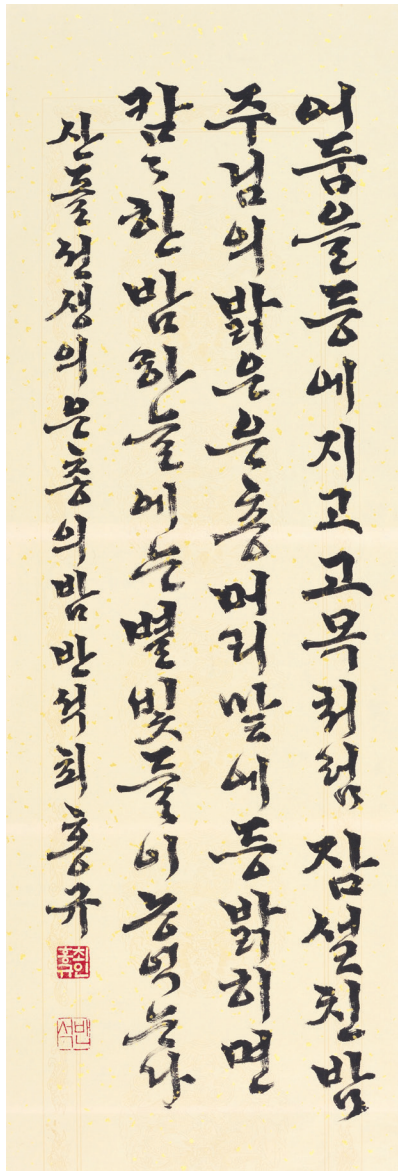 어둠을 등에 지고 고목처럼 잠설친 밤
주님의 밝은 은총 머리맡에 등 밝히면
캄〻한 밤하늘에는 별빛들이 눈역는다
산돌선생의 은총의 밤 반석 최홍규
최인홍규
반석